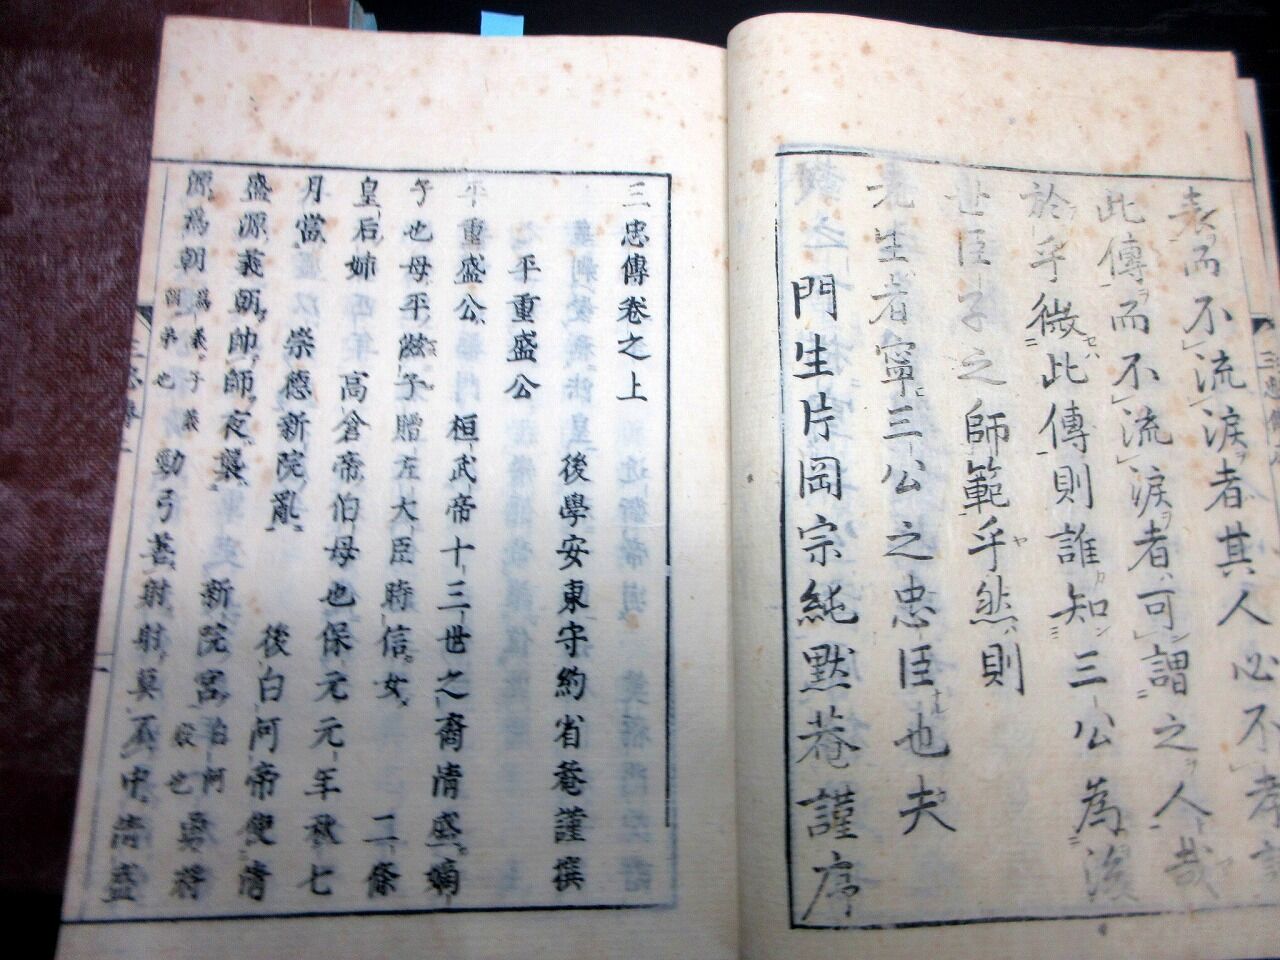 表而不流涙者其人必不孝
此傳而不流涙者可謂之人哉
於乎微此傳則誰知三公為後
世臣子之師範乎然則
先生者寧三公之忠臣也夫
門生片岡宗純默菴謹序
三忠傳卷之上
後學安東守約省菴謹撰
平重盛公
平重盛公桓武帝十三世之裔清盛嫡
子也母平滋子贈左大臣時信女二條
皇后姉高倉帝伯母也保元元年秋七
月當崇德新院亂後白河帝使清
盛源義朝帥師夜襲新院宮白河殿也勇將
源爲朝爲義子義朝弟也勁弓善射射莫不中清盛